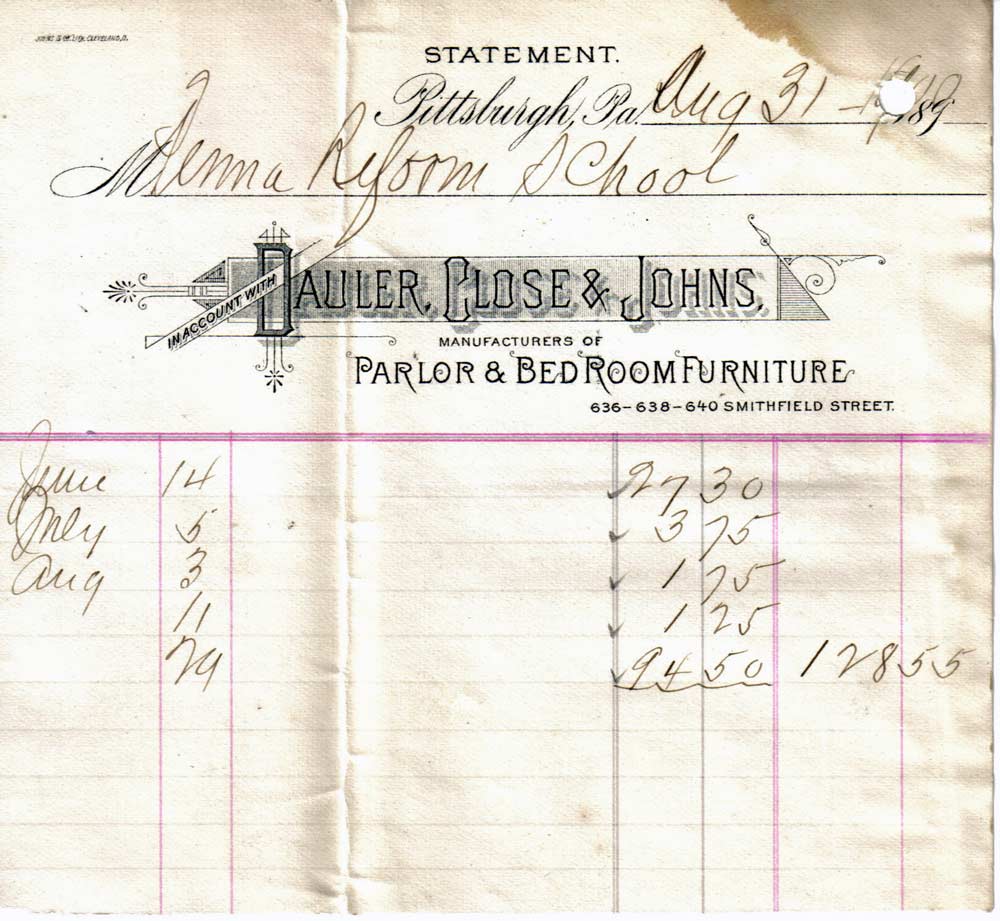 STATEMENT.
Pittsburgh, Pa. Aug 31 - 189
M Penna Reform School
IN ACCOUNT WITH
DAULER, CLOSE & JOHNS,
MANUFACTURERS OF
PARLOR & BED ROOM FURNITURE
636-638-640 SMITHFIELD STREET.
June 14 27 30
July 5 3 75
Aug 3 1 75
11 1 25
29 94 50 128 55